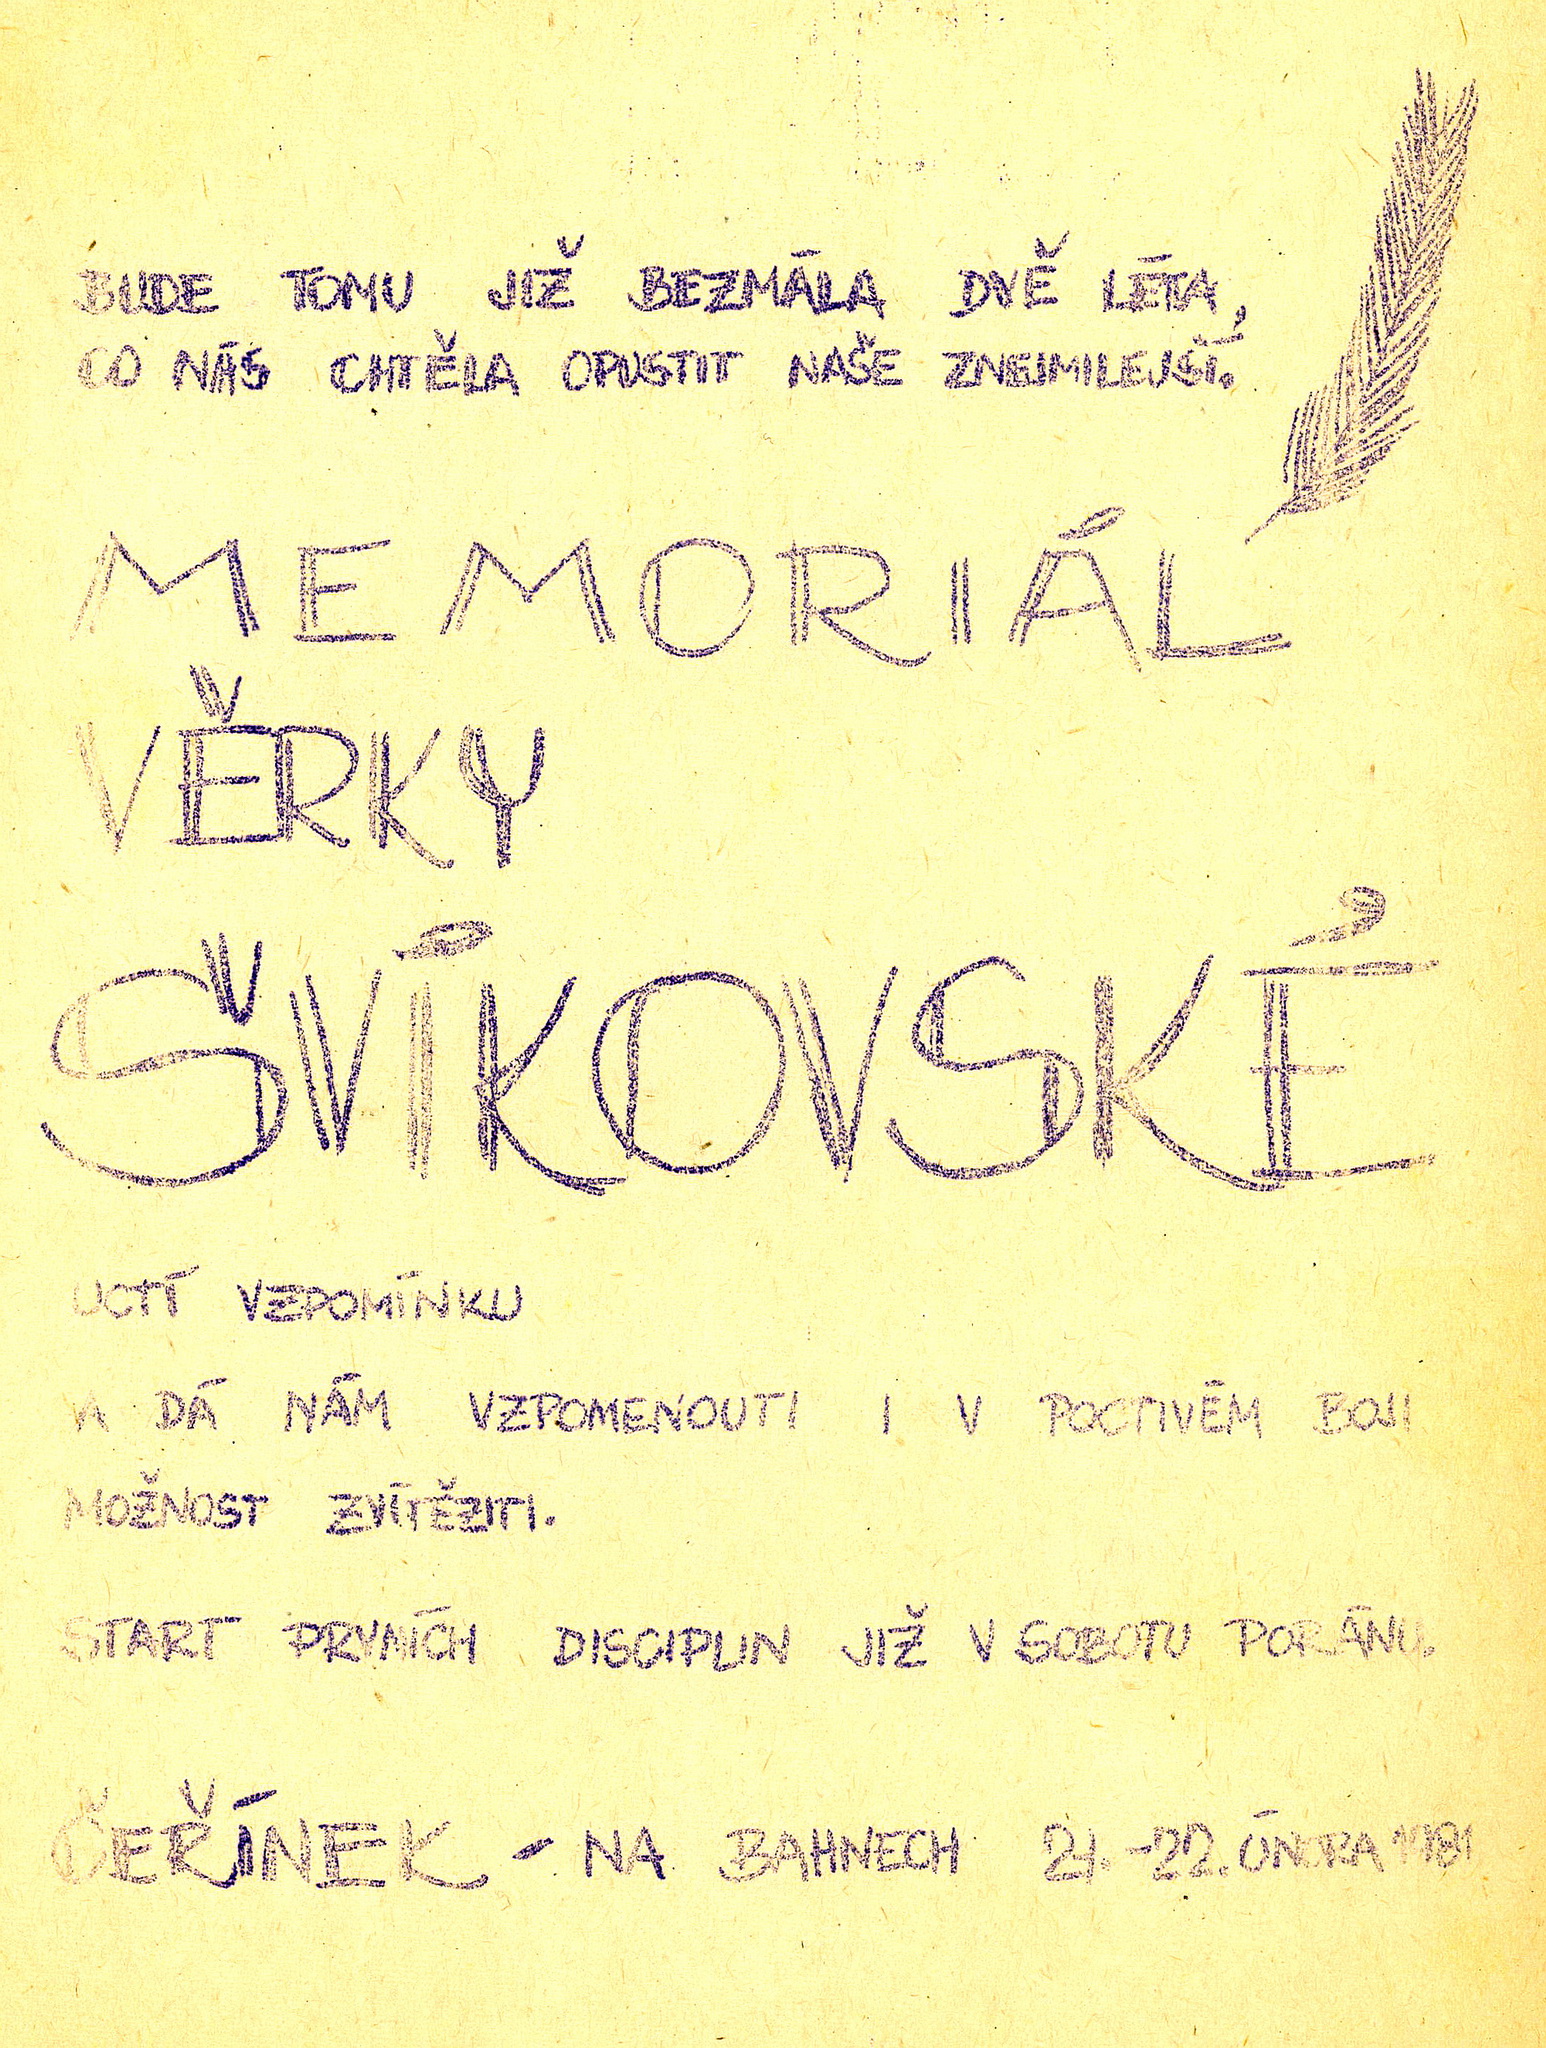 BUDE TOMU JIŽ BEZMÁLA DVĚ LÉTA,
CO NÁS CHTĚLA OPUSTIT NAŠE ZNEJMILEJŠÍ.
MEMORIÁL
VĚRKY
ŠVÍKOVSKÉ
UCTÍ VZPOMÍNKU
A DÁ NÁM VZPOMENOUTI I V POCTIVÉM BOJI
MOŽNOST ZVÍTĚZITI.
START PRVNÍCH DISCIPLIN JIŽ V SOBOTU PORÁNU.
ČEŘÍNEK - NA BAHNECH 21.-22. ÚNORA 1981